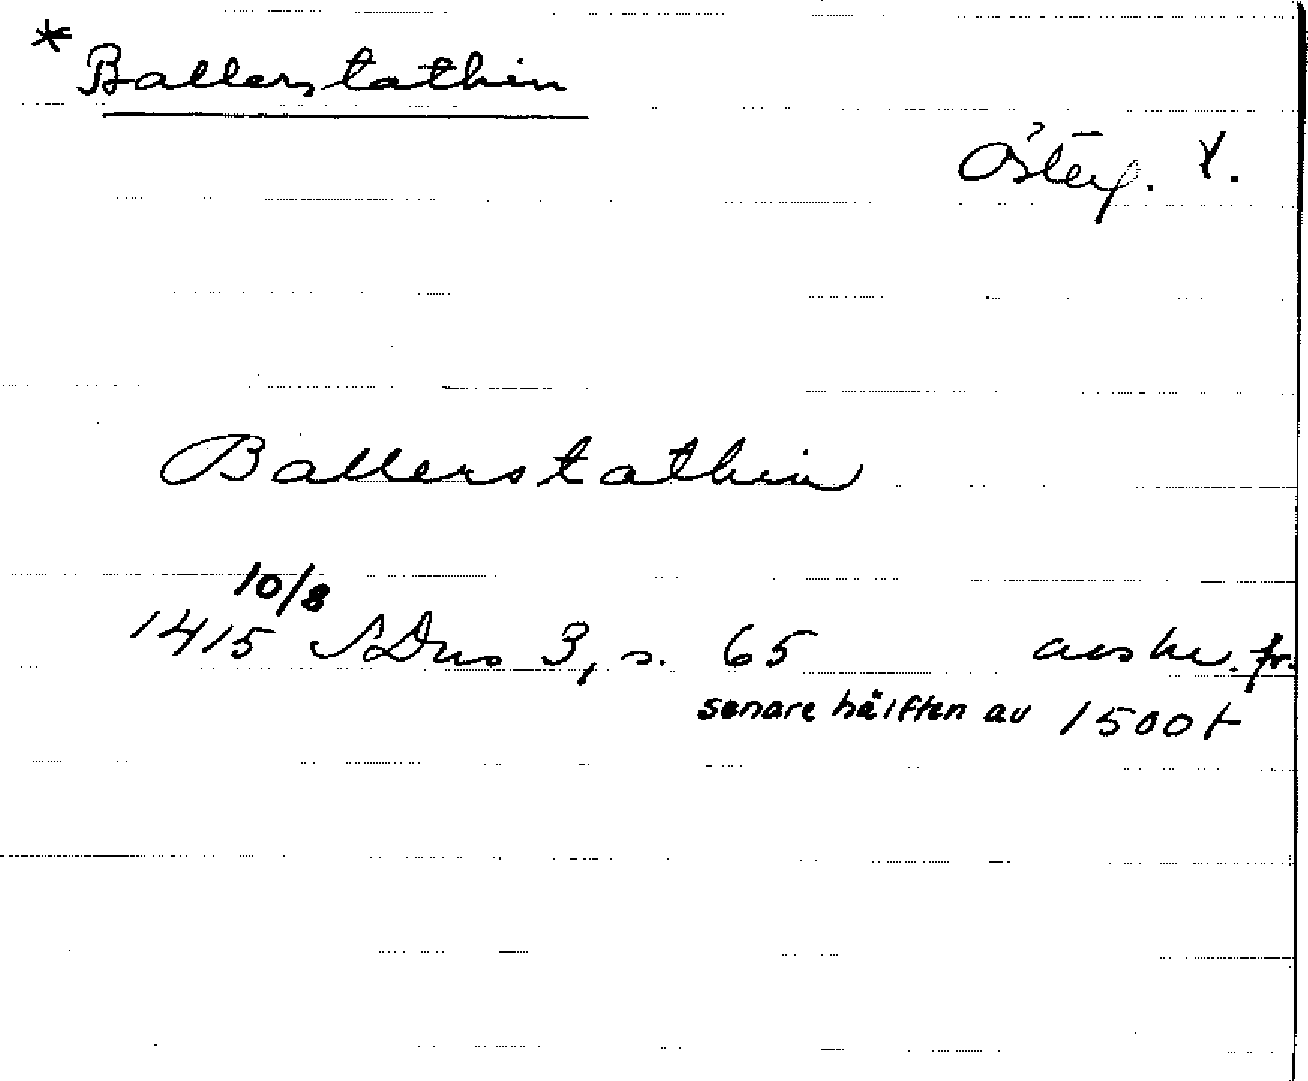 * Ballerstathin
Österg. l.
Ballerstathin
10/8
1415 SDns 3, s. 65 avskr. fr.
senare hälften av 1500t